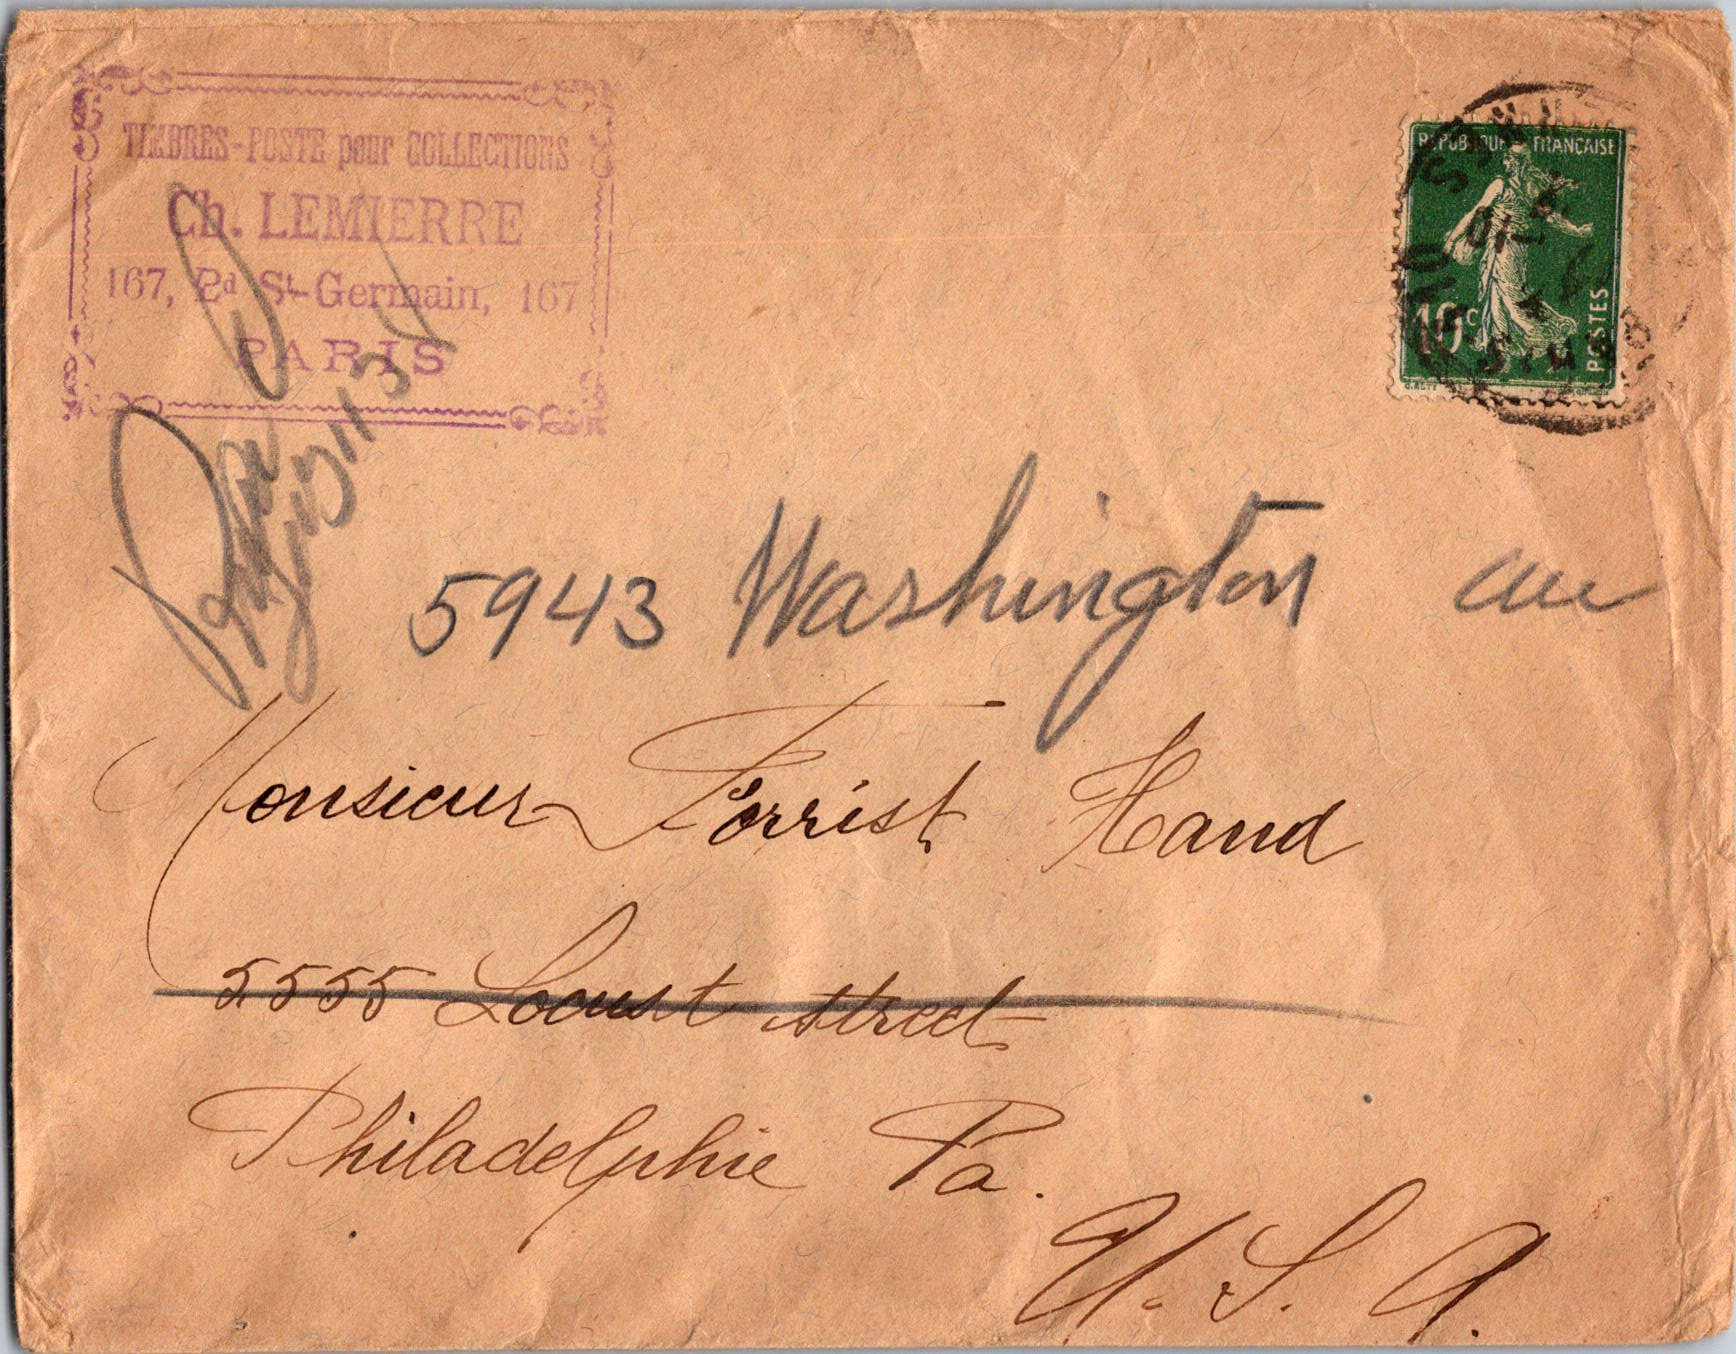 TIMBRES-POSTE pour COLLECTIONS
Ch. LEMIERRE
167, Bd St-Germain, 167
PARIS
REPUBLIQUE FRANÇAISE
10c
POSTES
5943 Washington ave
Monsieur Forrist Hand
5555 Locust street
Philadelphie Pa.
U. S. A.